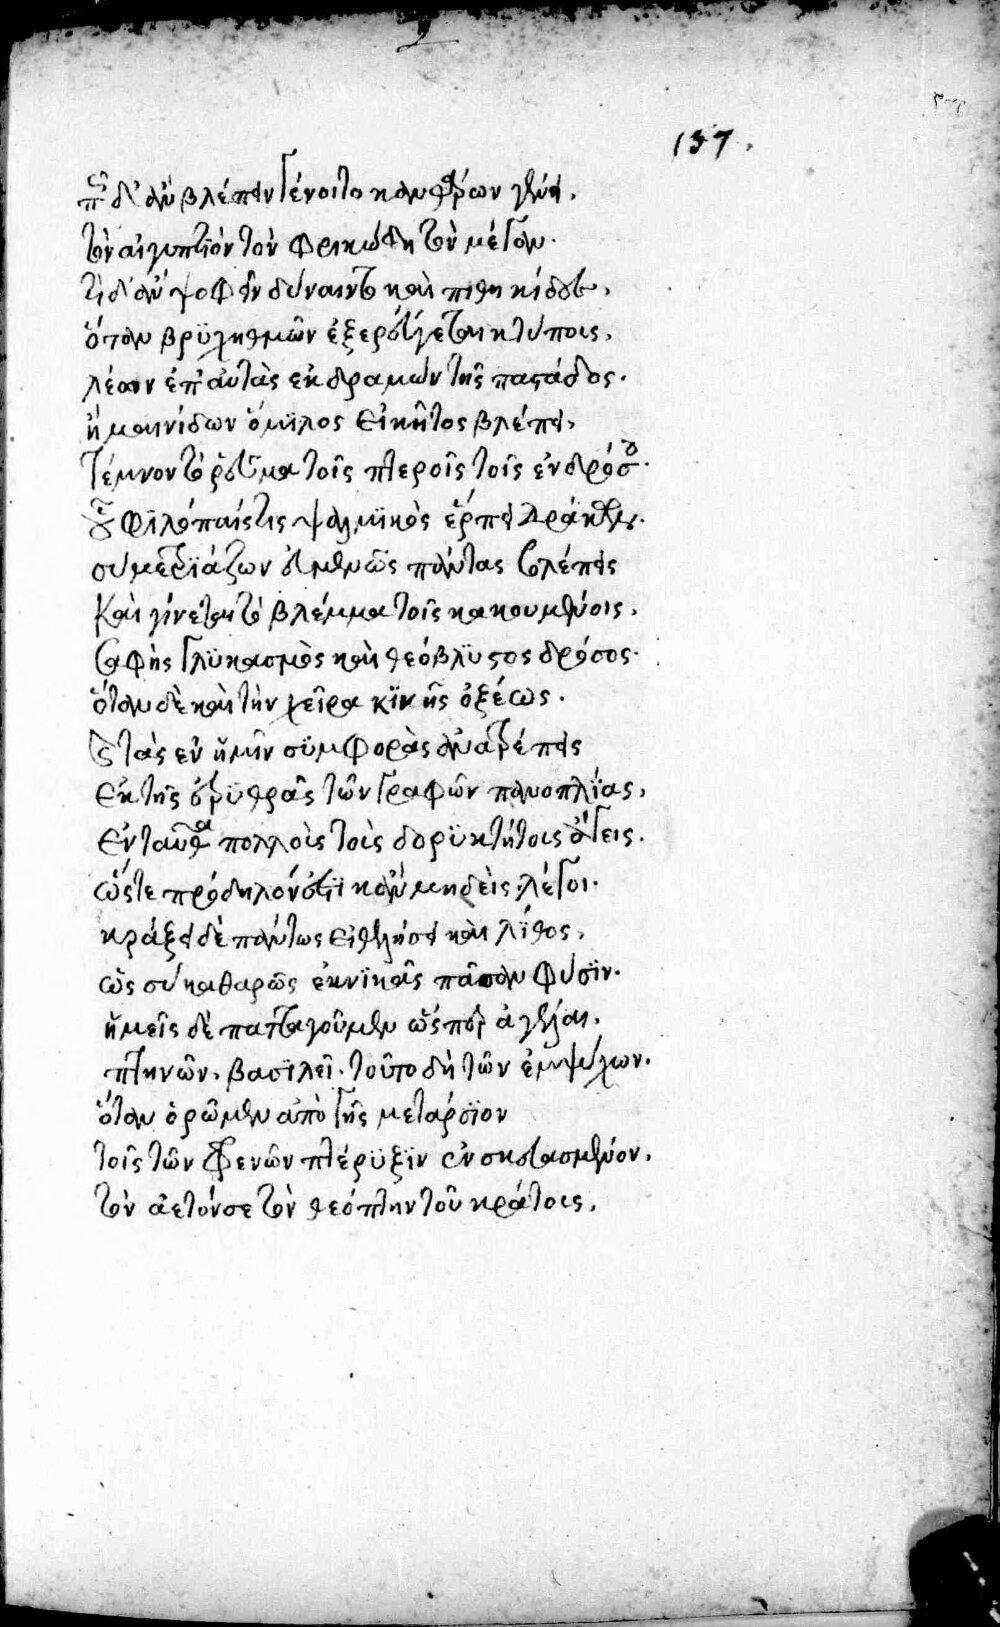 137.
πῶς δ' ἂν βλέπειν γένοιτο κανθάρων γένη.
τὸν αἰγυπτϊὸν τὸν φρικώδη τὸν μέγαν.
τί δ' ἂν ψοφεῖν δύναιντο καὶ πιθηκίδες.
ὅταν βρϋχηθμῶν ἐξερεύγεται κτύποις.
λέων ἐπ' αυτὰς εκδραμών τῆς παστάδος.
ἢ μαινίδων ὅμϊλος εἰ κῆτος βλέπει.
τέμνον τὸ ῥεῦμα τοῖς πτεροῖς τοῖς ενδρόσου.
οὗ φϊλόπαίστις ψαλμϊκὸς ἕρπει δράκων.
συμετρϊάζων εὐμενῶς πάντας βλέπεις
καὶ γίνεται τὸ βλέμμα τοῖς κακουμένοις.
σαφὴς γλϋκασμὸς καὶ θεόβλϋστος δρόσος.
ὅταν δὲ καὶ τὴν χεῖρα κϊνῆς ὀξέως.
τὰς εν ἡμῖν σϋμφορὰς ἀνατρέπεις
εκ τῆς ἐρϋθρᾶς τῶν γραφῶν πανοπλΐας.
ενταῦθα πολλοὶς τοὶς δορϋκτήτοις ἄγεις.
ὥστε πρόδηλόν ἐστϊ κἂν μηδεὶς λέγοι.
κράξει δὲ πάντως ει θελήσει καὶ λΐθος.
ὡς συ καθαρῶς εκνϊκᾶς πᾶσαν φύσϊν.
ἡμεῖς δὲ παπταγοῦμεν ὥσπερ ἀγέλαι.
πτηνῶν. βασϊλεῖ. τοῦτο δὴ τῶν ἐμψύχων.
ὅταν ὁρῶμεν απὸ γῆς μετάρσϊον
τοῖς τῶν φρενῶν πτέρϋξϊν ενσκευασμένον.
τὸν αετόν σε τὸν θεόπτην τοῦ κράτοις.